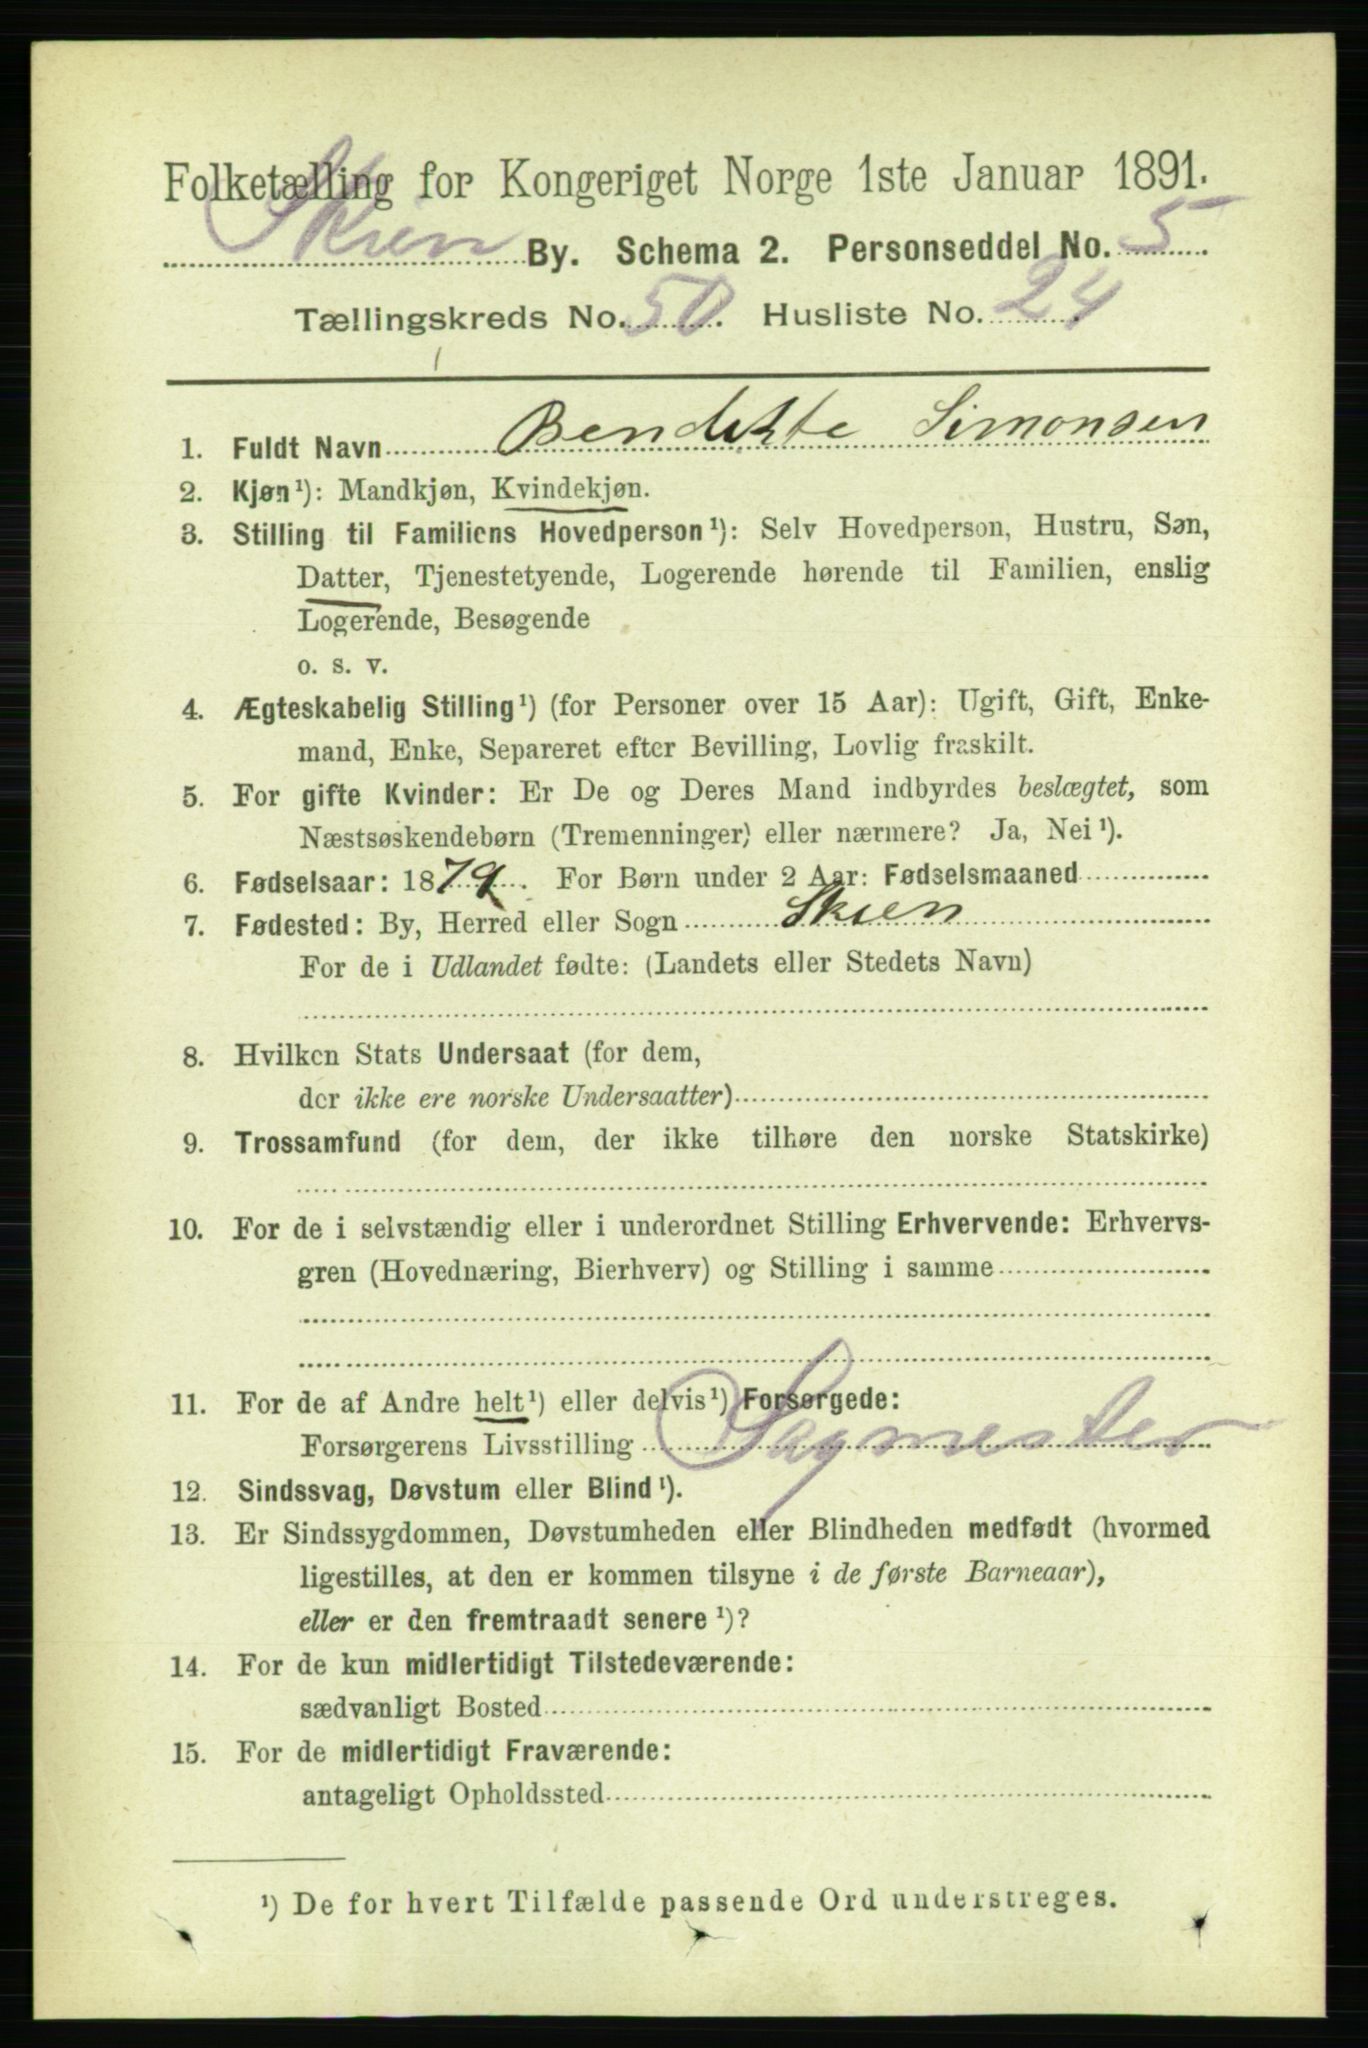 Folketælling for Kongeriget Norge 1ste Januar 1891.
Skien By. Schema 2. Personseddel No. 5
Tællingskreds No. 50. Husliste No. 24
1. Fuldt Navn Bendikte Simonsen
2. Kjøn¹): Mandkjøn, Kvindekjøn.
3. Stilling til Familiens Hovedperson¹): Selv Hovedperson, Hustru, Søn,
Datter, Tjenestetyende, Logerende hørende til Familien, enslig
Logerende, Besøgende
o. s. v.
4. Ægteskabelig Stilling¹) (for Personer over 15 Aar): Ugift, Gift, Enke-
mand, Enke, Separeret efter Bevilling, Lovlig fraskilt.
5. For gifte Kvinder: Er De og Deres Mand indbyrdes beslægtet, som
Næstsøskendebørn (Tremenninger) eller nærmere? Ja, Nei¹).
6. Fødselsaar: 1879. For Børn under 2 Aar: Fødselsmaaned
7. Fødested: By, Herred eller Sogn Skien
For de i Udlandet fødte: (Landets eller Stedets Navn)
8. Hvilken Stats Undersaat (for dem,
der ikke ere norske Undersaatter)
9. Trossamfund (for dem, der ikke tilhøre den norske Statskirke)
10. For de i selvstændig eller i underordnet Stilling Erhvervende: Erhvervs-
gren (Hovednæring, Bierhverv) og Stilling i samme
11. For de af Andre helt¹) eller delvis¹) Forsørgede:
Forsørgerens Livsstilling Sagmester
12. Sindssvag, Døvstum eller Blind¹).
13. Er Sindssygdommen, Døvstumheden eller Blindheden medfødt (hvormed
ligestilles, at den er kommen tilsyne i de første Barneaar),
eller er den fremtraadt senere¹)?
14. For de kun midlertidigt Tilstedeværende:
sædvanligt Bosted
15. For de midlertidigt Fraværende:
antageligt Opholdssted
¹) De for hvert Tilfælde passende Ord understreges.